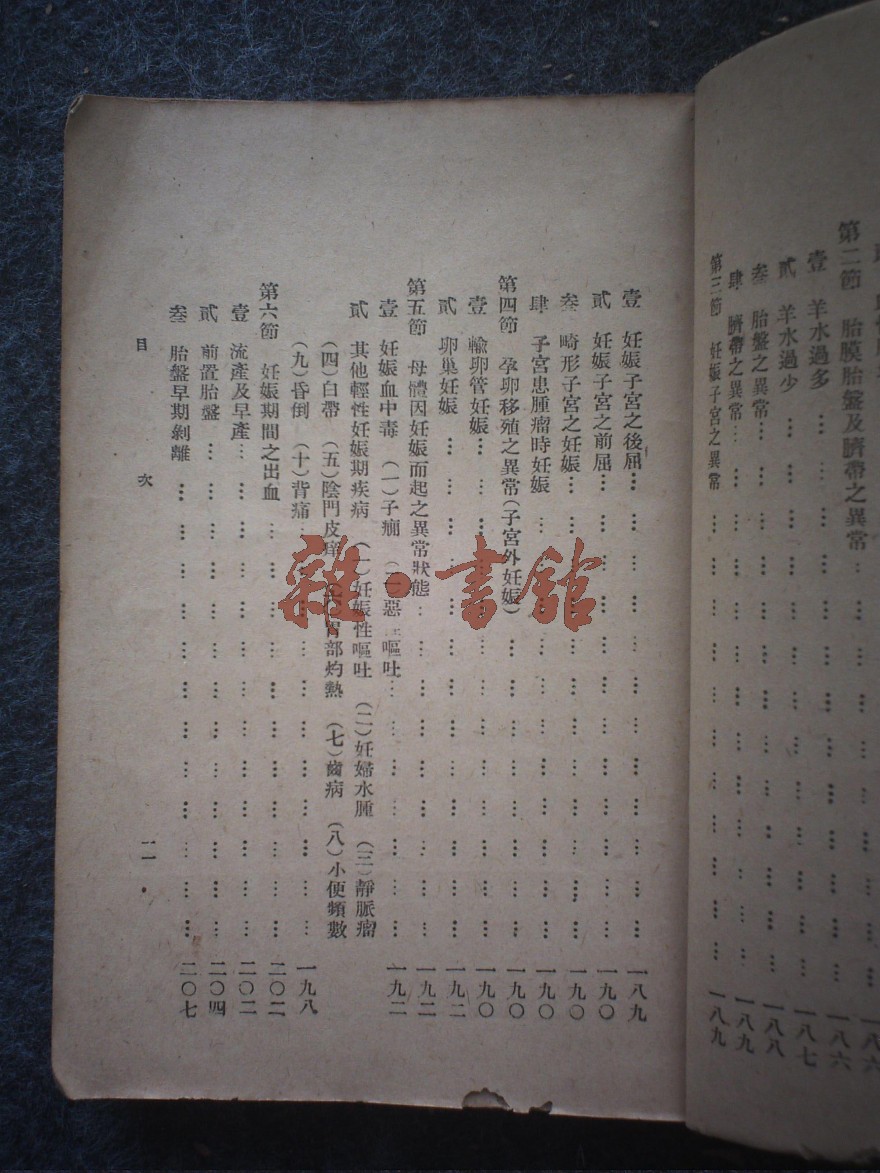 第二節 胎膜胎盤及臍帶之異常 … … … … … … 一八六
壹 羊水過多 … … … … … … … … 一八六
貳 羊水過少 … … … … … … … … 一八七
叁 胎盤之異常 … … … … … … … … 一八八
肆 臍帶之異常 … … … … … … … … 一八九
第三節 妊娠子宮之異常 … … … … … … … 一八九
壹 妊娠子宮之後屈 … … … … … … … … 一八九
貳 妊娠子宮之前屈 … … … … … … … … 一九〇
叁 畸形子宮之妊娠 … … … … … … … … 一九〇
肆 子宮患腫瘤時妊娠 … … … … … … … … 一九〇
第四節 孕卵移殖之異常(子宮外妊娠) … … … … … 一九〇
壹 輸卵管妊娠 … … … … … … … … 一九〇
貳 卵巢妊娠 … … … … … … … … 一九二
第五節 母體因妊娠而起之異常狀態 … … … … … 一九二
壹 妊娠血中毒 (一)子癇 (二)惡性嘔吐 … … … … 一九二
貳 其他輕性妊娠期疾病 (一)妊娠性嘔吐 (二)妊婦水腫 (三)靜脈瘤
(四)白帶 (五)陰門皮痒 (六)胃部灼熱 (七)齒病 (八)小便頻數
(九)昏倒 (十)背痛 … … … … … … … 一九八
第六節 妊娠期間之出血 … … … … … … … 二〇二
壹 流產及早產 … … … … … … … … 二〇二
貳 前置胎盤 … … … … … … … … 二〇四
叁 胎盤早期剝離 … … … … … … … … 二〇七
目 次 一一
雜·書館